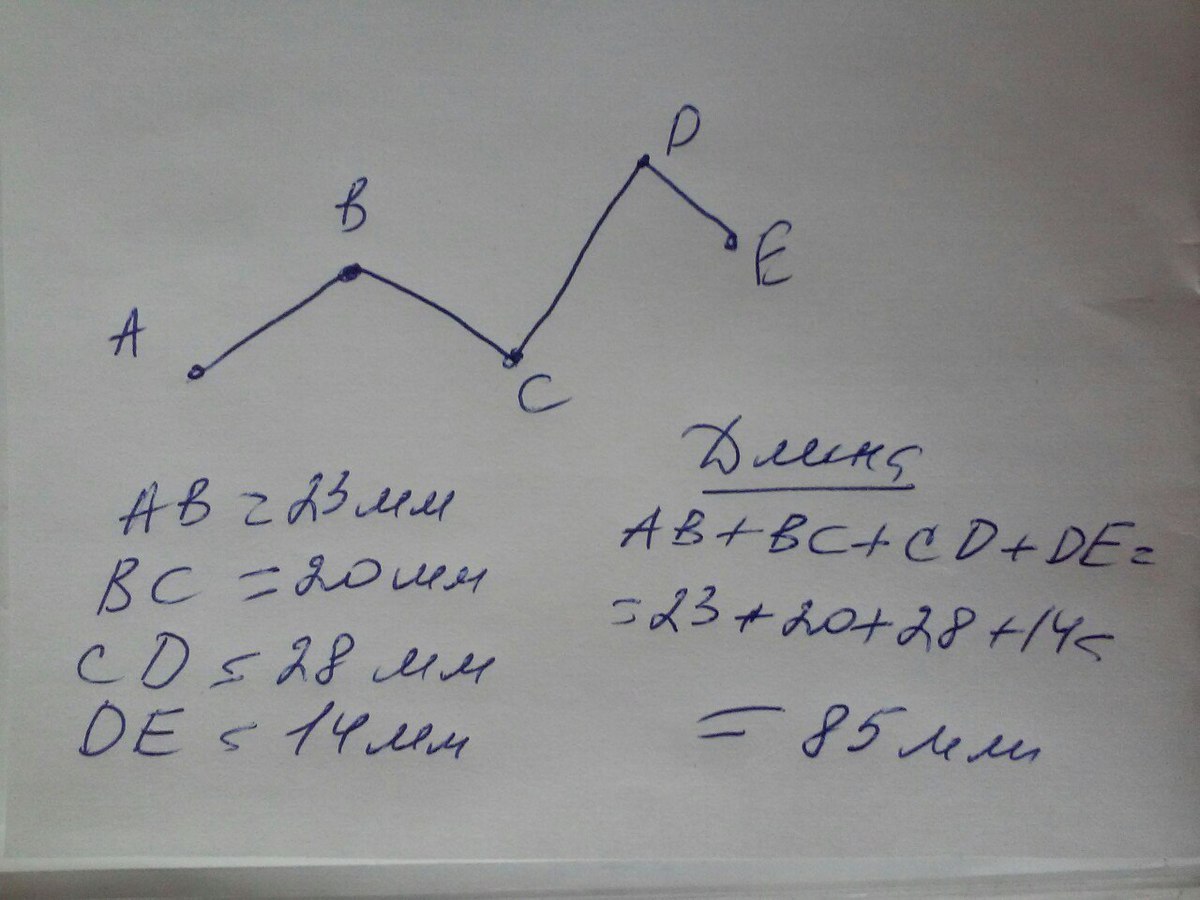 A
B
C
D
E
AB = 23 мм
BC = 20 мм
CD = 28 мм
DE = 14 мм
Длина
AB + BC + CD + DE =
= 23 + 20 + 28 + 14 =
= 85 мм